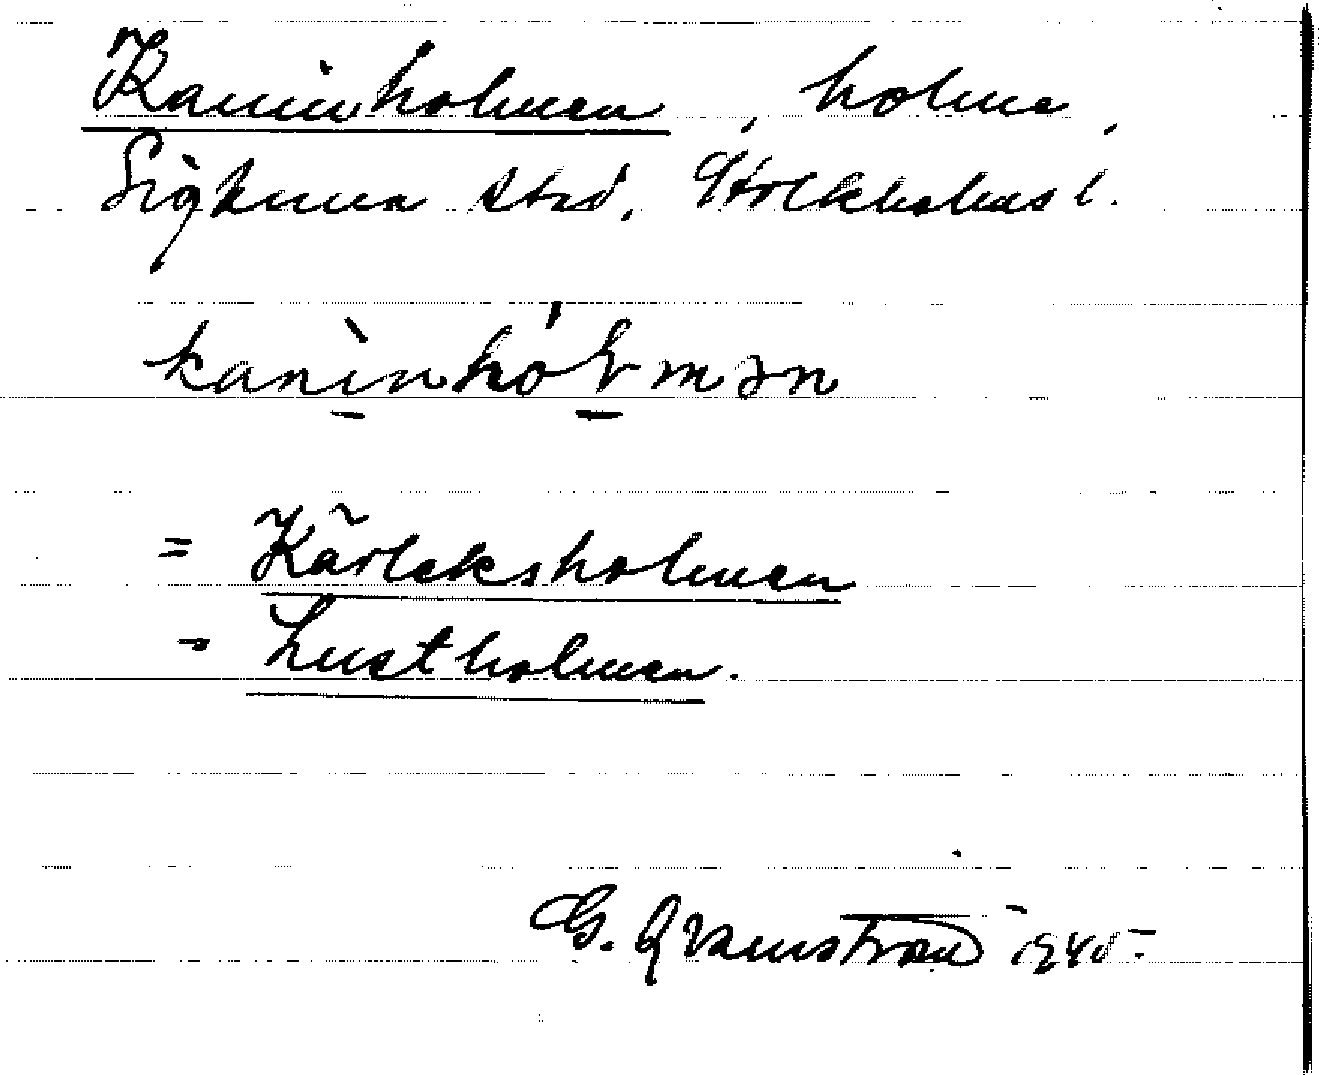 Kaninholmen, holme,
Sigtuna stad, Stockholms l.
kanìnhólmən
= Kärleksholmen
= Lustholmen.
G. Qvarnström 1945.